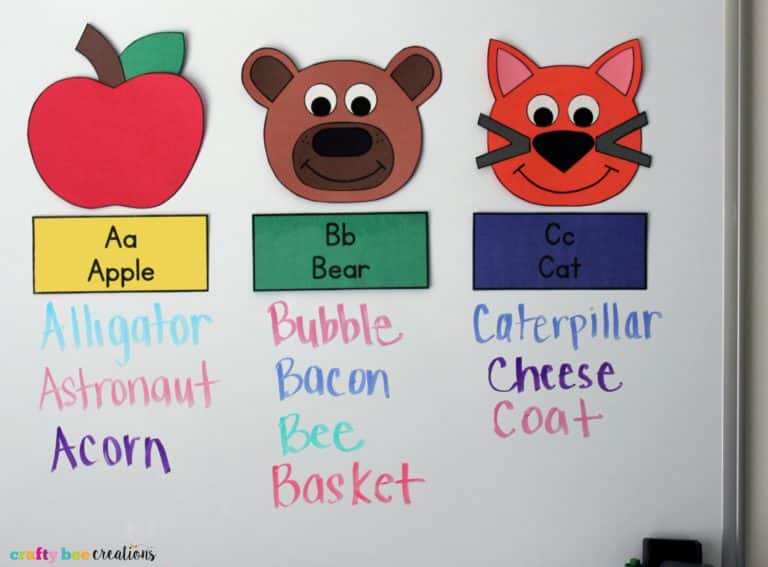 Aa
Apple
Alligator
Astronaut
Acorn
Bb
Bear
Bubble
Bacon
Bee
Basket
Cc
Cat
Caterpillar
Cheese
Coat
crafty bee creations